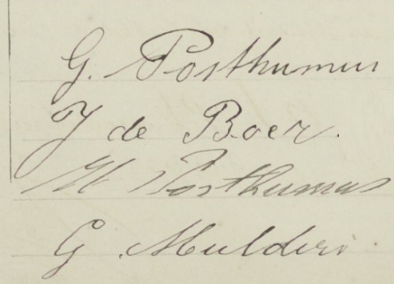 G. Posthumus
J de Boer.
H Posthumus
G. Mulder